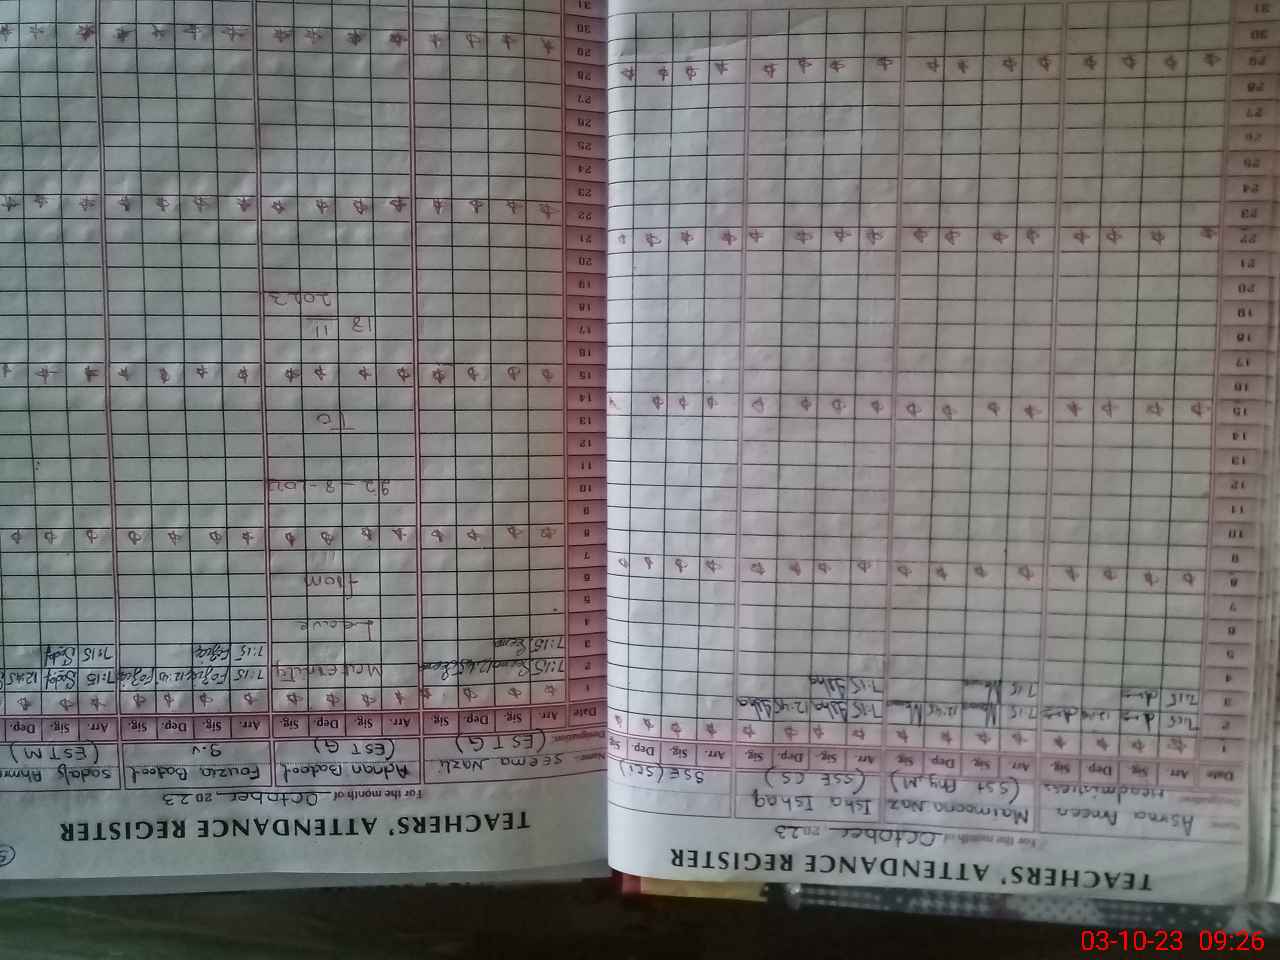 TEACHERS' ATTENDANCE REGISTER
For the month of October 2023
Name: Asma Ameen Maimoona Naz Isha Ishaq
Designation: Headmistress (SST Phy, M) (SSE CS) SSE (Sci)
Date Arr. Sig. Dep. Sig. Arr. Sig. Dep. Sig. Arr. Sig. Dep. Sig. Arr. Sig. Dep. Sig.
1
2 7:15 7:15 12:45 7:15 Isha 12:45 Isha
3 7:15 7:15 7:15 Isha
4
5
6
7
8
9
10
11
12
13
14
15
16
17
18
19
20
21
22
23
24
25
26
27
28
29
30
31
TEACHERS' ATTENDANCE REGISTER
For the month of October 2023
5
Name: Seema Nazli Adnan Batool Fouzia Batool Sadaf
Designation: (EST G) (EST G) (EST M)
Date Arr. Sig. Dep. Sig. Arr. Sig. Dep. Sig. Arr. Sig. Dep. Sig. Arr. Sig. Dep.
1
2 7:15 Seema 12:45 Seema Maternity 7:15 Fozia 12:45 Fozia 7:15 Sadaf 12:45
3 7:15 Seema 7:15 Fozia 7:15 Sadaf
4 Leave
5
6 from
7
8
9
10
11
12
13 To
14
15
16
17 18 11
18 2023
19
20
21
22
23
24
25
26
27
28
29
30
31
03-10-23 09:26